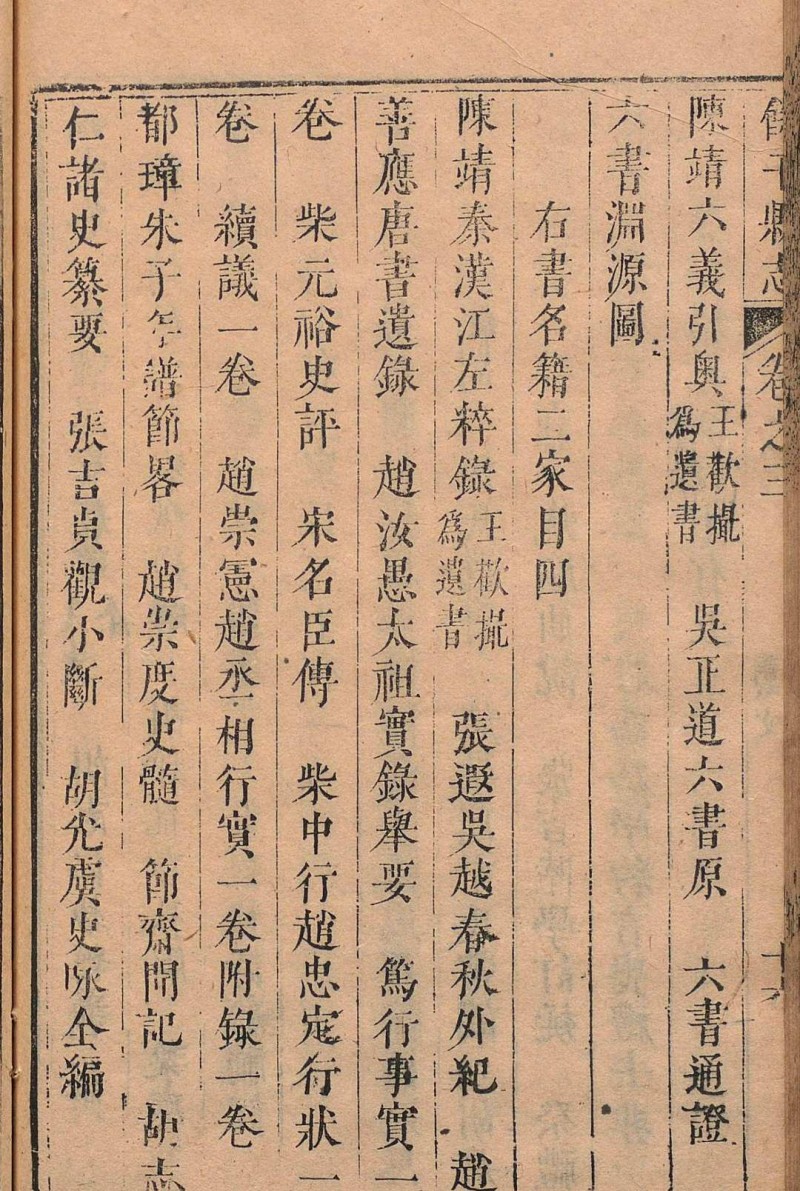 餘干縣志 卷之三
陳靖六義引奧王歡掘為遺書 吳正道六書原 六書通證
六書淵源圖
右書名籍二家目四
陳靖秦漢江左粹錄王歡掘為遺書 張遐吳越春秋外紀 趙
善應唐書遺錄 趙汝愚太祖實錄舉要 篤行事實一
卷 柴元裕史評 宋名臣傳 柴中行趙忠定行狀一
卷 續議一卷 趙崇憲趙丞相行實一卷附錄一卷
都璋朱子年譜節畧 趙崇度史髓 節齋聞記 胡志
仁諸史纂要 張吉貞觀小斷 胡允虞史咏全編